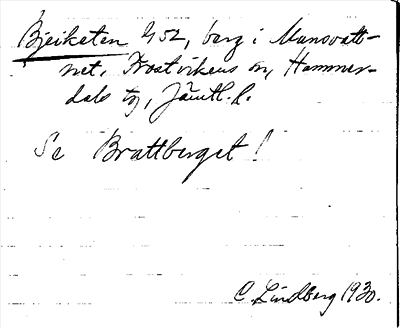 Bjeiketen 452, berg i Mansvatt-
net, Frostvikens sn, Hammer-
dals tg, Jämtl. l.
Se Brattberget!
C. Lindberg 1930.